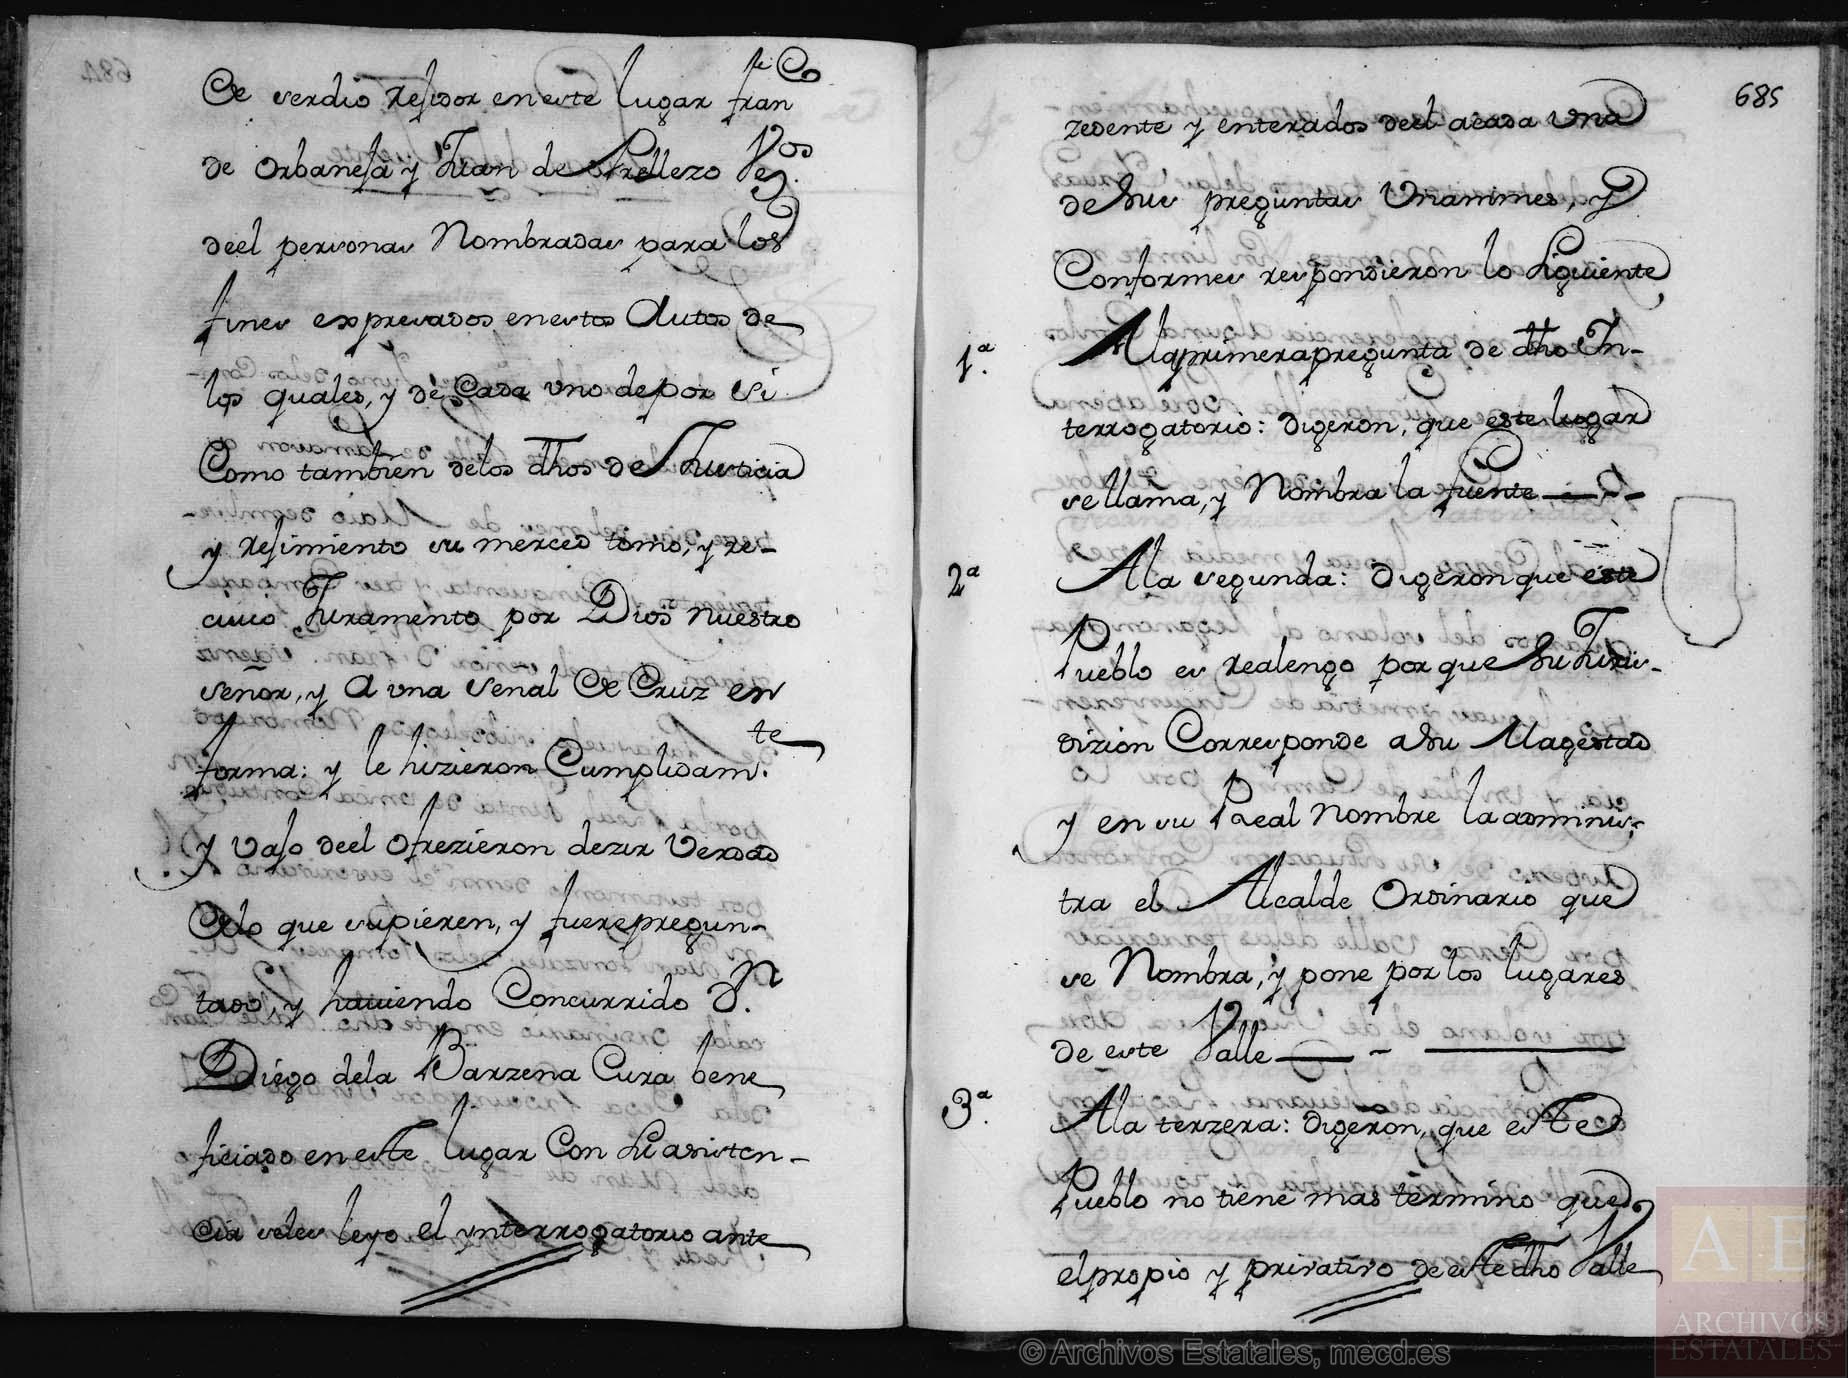 De verdio Rejidor en este lugar fran.co
de Orbaneja y Juan de Arellezo Vez.os
deel personas Nombradas para los
fines expresados en estos Autos de
los quales, y de Cada uno de por si
Como tambien delos dhos de Justicia
y Rejimiento su merced tomo, y re-
civio Juramento por Dios nuestro
señor, y A una señal de Cruz en
forma: y le hizieron Cumplidam.te
y vajo deel ofrezieron dezir verdad
de lo que supieren, y fuere pregun-
tado, y haviendo Concurrido D.n
Diego dela Barzena Cura bene
ficiado en este lugar Con su asisten-
cia seles leyo el ynterrogatorio ante
685
zedente y enterados deel a cada una
de sus preguntas Unanimes, y
Conformes respondieron lo siguiente
1.a A la primera pregunta de dho In-
terrogatorio: digeron, que este lugar
se llama, y Nombra la fuente
2.a A la segunda: digeron que este
Pueblo es realengo por que su Juris-
dizion Corresponde a su Magestad
y en su Real Nombre la adminis-
tra el Alcalde Ordinario que
se Nombra, y pone por los lugares
de este Valle
3.a A la terzera: digeron, que este
Pueblo no tiene mas termino que
el propio y privativo de este dho Valle
AE
ARCHIVOS
ESTATALES
© Archivos Estatales, mecd.es